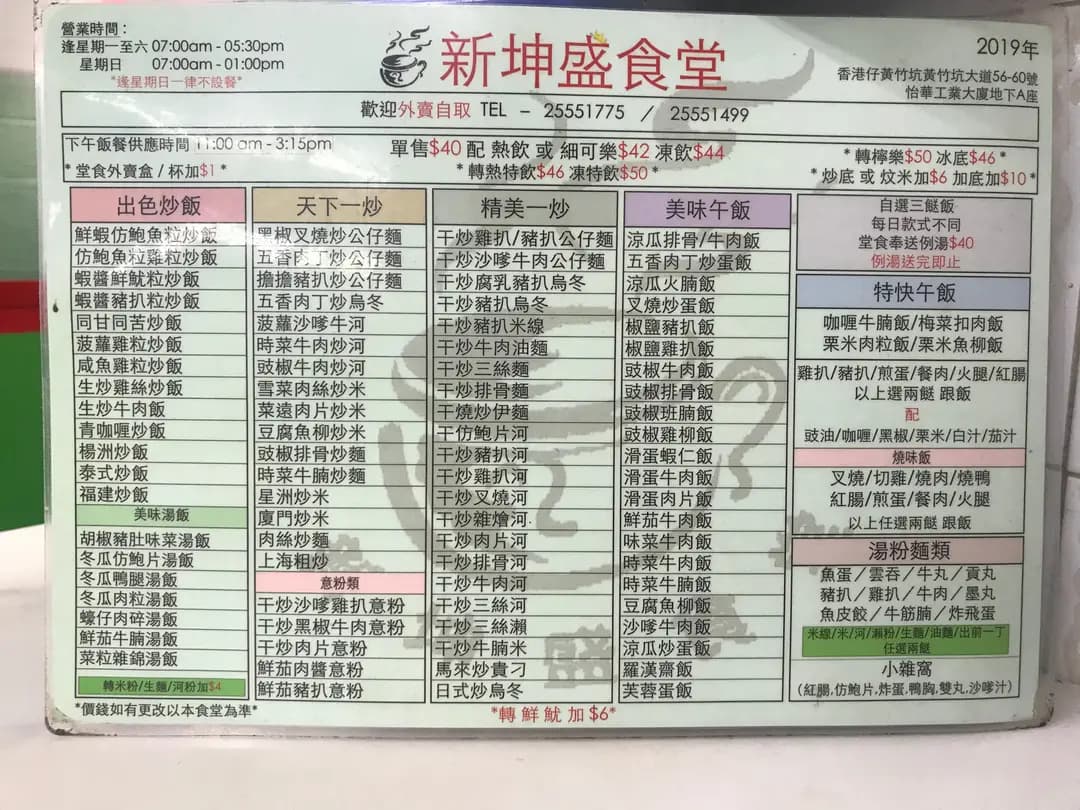 營業時間：
逢星期一至六 07:00am - 05:30pm
星期日 07:00am - 01:00pm
*逢星期日一律不設餐*
新坤盛食堂
2019年
香港仔黃竹坑黃竹坑大道56-60號
怡華工業大廈地下A座
歡迎外賣自取 TEL － 25551775 / 25551499
下午飯餐供應時間 11:00 am - 3:15pm
*堂食外賣盒 / 杯加$1 *
單售$40 配 熱飲 或 細可樂$42 凍飲$44
*轉熱特飲$46 凍特飲$50 *
* 轉檸樂$50 冰底$46 *
* 炒底 或 炆米加$6 加底加$10 *
出色炒飯
鮮蝦仿鮑魚粒炒飯
仿鮑魚粒雞粒炒飯
蝦醬鮮魷粒炒飯
蝦醬豬扒粒炒飯
同甘同苦炒飯
菠蘿雞粒炒飯
咸魚雞粒炒飯
生炒雞絲炒飯
生炒牛肉飯
青咖喱炒飯
楊洲炒飯
泰式炒飯
福建炒飯
美味湯飯
胡椒豬肚味菜湯飯
冬瓜仿鮑片湯飯
冬瓜鴨腿湯飯
冬瓜肉粒湯飯
蠔仔肉碎湯飯
鮮茄牛腩湯飯
菜粒雜錦湯飯
轉米粉/生麵/河粉加$4
*價錢如有更改以本食堂為準*
天下一炒
黑椒叉燒炒公仔麵
五香肉丁炒公仔麵
擔擔豬扒炒公仔麵
五香肉丁炒烏冬
菠蘿沙嗲牛河
時菜牛肉炒河
豉椒牛肉炒河
雪菜肉絲炒米
菜遠肉片炒米
豆腐魚柳炒米
豉椒排骨炒麵
時菜牛腩炒麵
星洲炒米
廈門炒米
肉絲炒麵
上海粗炒
意粉類
干炒沙嗲雞扒意粉
干炒黑椒牛肉意粉
干炒肉片意粉
鮮茄肉醬意粉
鮮茄豬扒意粉
精美一炒
干炒雞扒/豬扒公仔麵
干炒沙嗲牛肉公仔麵
干炒腐乳豬扒烏冬
干炒豬扒烏冬
干炒豬扒米線
干炒牛肉油麵
干炒三絲麵
干炒排骨麵
干燒炒伊麵
干仿鮑片河
干炒豬扒河
干炒雞扒河
干炒叉燒河
干炒雜燴河
干炒肉片河
干炒排骨河
干炒牛肉河
干炒三絲河
干炒三絲瀨
干炒牛腩米
馬來炒貴刁
日式炒烏冬
*轉 鮮 魷 加 $6*
美味午飯
涼瓜排骨/牛肉飯
五香肉丁炒蛋飯
涼瓜火腩飯
叉燒炒蛋飯
椒鹽豬扒飯
椒鹽雞扒飯
豉椒牛肉飯
豉椒排骨飯
豉椒班腩飯
豉椒雞柳飯
滑蛋蝦仁飯
滑蛋牛肉飯
滑蛋肉片飯
鮮茄牛肉飯
味菜牛肉飯
時菜牛肉飯
時菜牛腩飯
豆腐魚柳飯
沙嗲牛肉飯
涼瓜炒蛋飯
羅漢齋飯
芙蓉蛋飯
自選三餸飯
每日款式不同
堂食奉送例湯$40
例湯送完即止
特快午飯
咖喱牛腩飯/梅菜扣肉飯
栗米肉粒飯/栗米魚柳飯
雞扒/豬扒/煎蛋/餐肉/火腿/紅腸
以上選兩餸 跟飯
配
豉油/咖喱/黑椒/栗米/白汁/茄汁
燒味飯
叉燒/切雞/燒肉/燒鴨
紅腸/煎蛋/餐肉/火腿
以上任選兩餸 跟飯
湯粉麵類
魚蛋／雲吞／牛丸／貢丸
豬扒／雞扒／牛肉／墨丸
魚皮餃／牛筋腩／炸飛蛋
米線/米/河/瀨粉/生麵/油麵/出前一丁
任選兩餸
小雜窩
（紅腸,仿鮑片,炸蛋,鴨胸,雙丸,沙嗲汁）